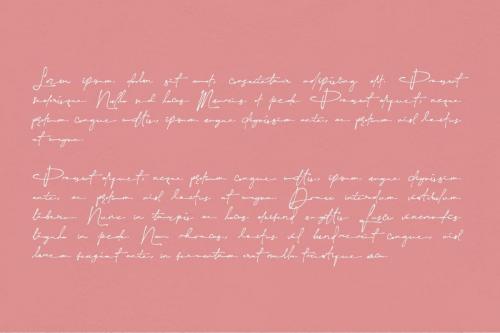 Lorem ipsum dolor sit amet, consectetuer adipiscing elit. Praesent
scelerisque. Nulla sed lacus. Mauris et pede. Praesent aliquet, neque
pretium congue mattis, ipsum augue dignissim ante, ac pretium nisl lectus
at magna.
Praesent aliquet, neque pretium congue mattis, ipsum augue dignissim
ante, ac pretium nisl lectus at magna. Donec interdum vestibulum
libero. Nunc in turpis ac lacus eleifend sagittis. Fusce venenatis
ligula in pede. Nam rhoncus, lectus vel hendrerit congue, nisl
lorem feugiat ante, in fermentum erat nulla tristique